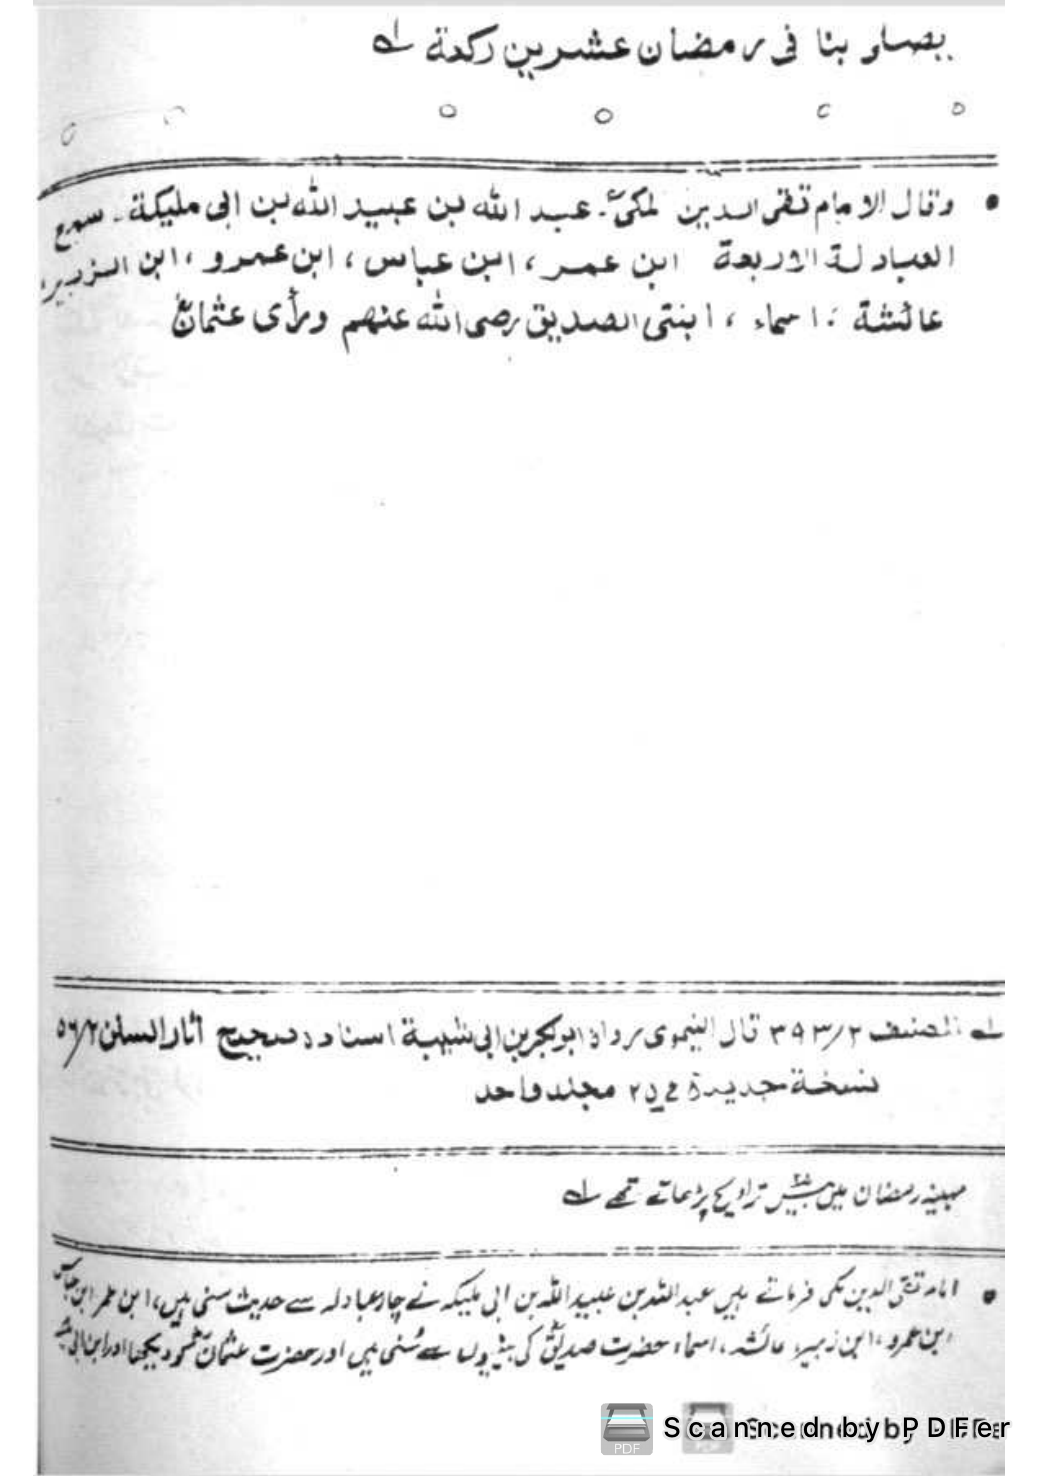 يصلى بنا فى رمضان عشرين ركعة لـه
• وقال الامام تقى الدين المكىؒ۔ عبد الله بن عبيد الله بن ابى مليكة۔ سمع
العبادلة الاربعة ابن عمر، ابن عباس، ابن عمرو، ابن الزبير،
عائشة، اسماء، ابنتى الصديق رضى الله عنهم ورأى عثمانؓ
لـه المصنف ٢/٣٩٣ قال النيموى رواه ابوبكر بن ابى شيبة اسناده صحيح آثار السنن ٢/٥٦
نسخة جديدة ص ٢٥ مجلد واحد
مہینہ رمضان میں بیس تراویح پڑھاتے تھے لـه
• امام تقی الدین مکی فرماتے ہیں عبداللہ بن عبیداللہ بن ابی ملیکہ نے چار عبادلہ سے حدیث سنی ہیں، ابن عمر ابن عباس
ابن عمرو، ابن زبیر، عائشہ، اسماء حضرت صدیقؓ کی بیٹیوں سے سُنی ہیں اور حضرت عثمانؓ کو دیکھا اور ابن ابی
PDF Scanned by PDFer